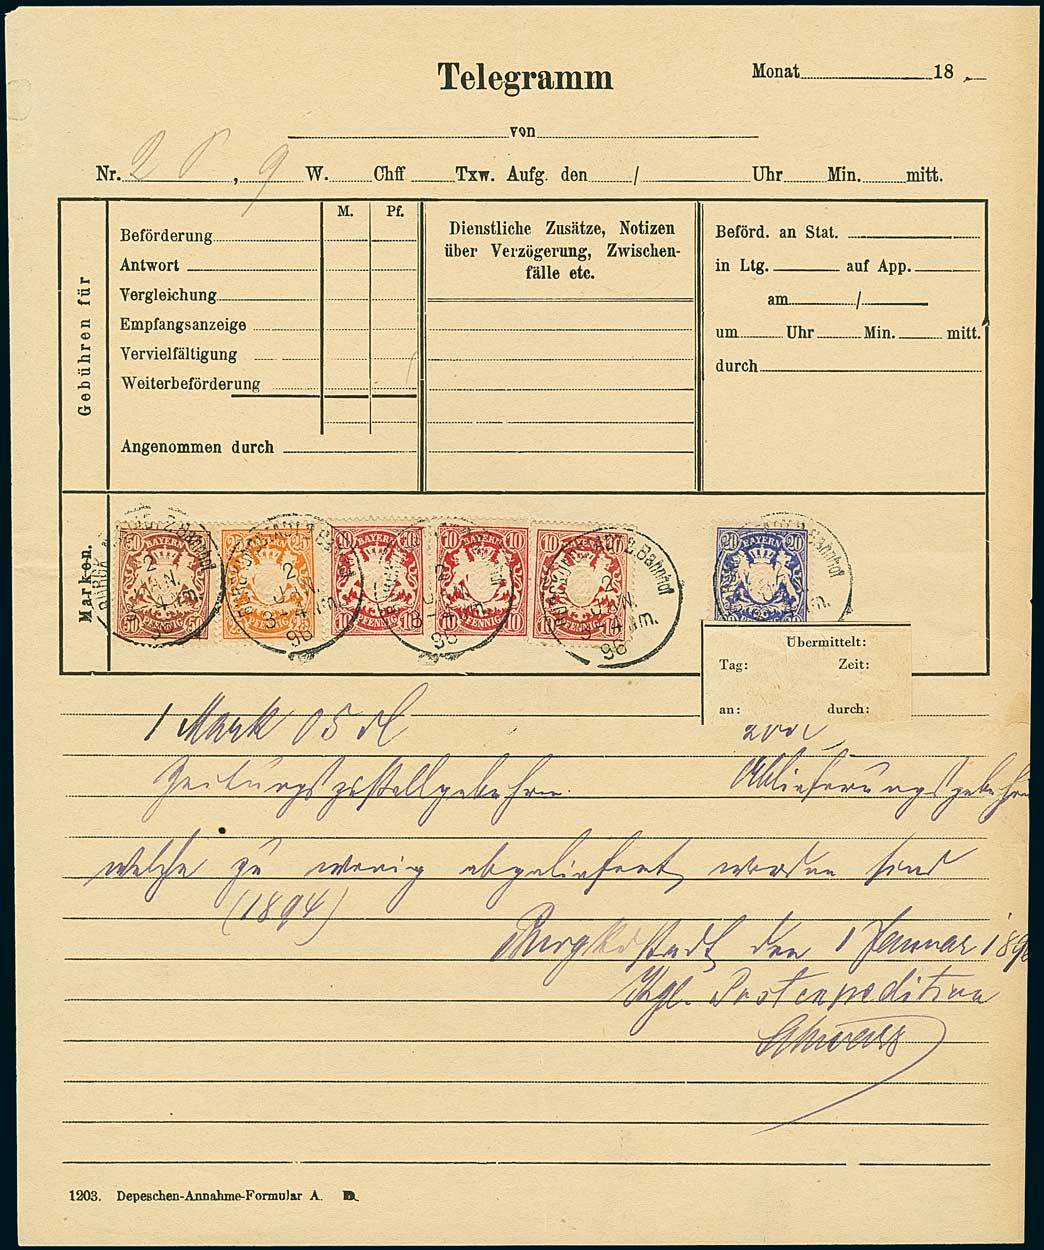 Telegramm
Monat 18
von
Nr. , 9 W. Chff Txw. Aufg. den / Uhr Min. mitt.
Gebühren für
M. Pf.
Beförderung
Antwort
Vergleichung
Empfangsanzeige
Vervielfältigung
Weiterbeförderung
Angenommen durch
Dienstliche Zusätze, Notizen
über Verzögerung, Zwischen-
fälle etc.
Beförd. an Stat.
in Ltg. auf App.
am /
um Uhr Min. mitt.
durch
Marken.
50 BAYERN 50 PFENNIG 50
25 BAYERN 25 PFENNIG
10 BAYERN 10 PFENNIG 10
10 BAYERN 10 10 PFENNIG 10
10 BAYERN 10 PFENNIG
20 BAYERN 20
Bahnhof
2 JAN. 96
Übermittelt:
Tag: Zeit:
an: durch:
1 Mark 05 ₰
Zeitungszustellgebühren. Ablieferungsgebühren
welche zu wenig abgeliefert worden sind
(1894)
Burgkundstadt den 1 Januar 1896
Kgl. Postexpedition
1203. Depeschen-Annahme-Formular A. D.